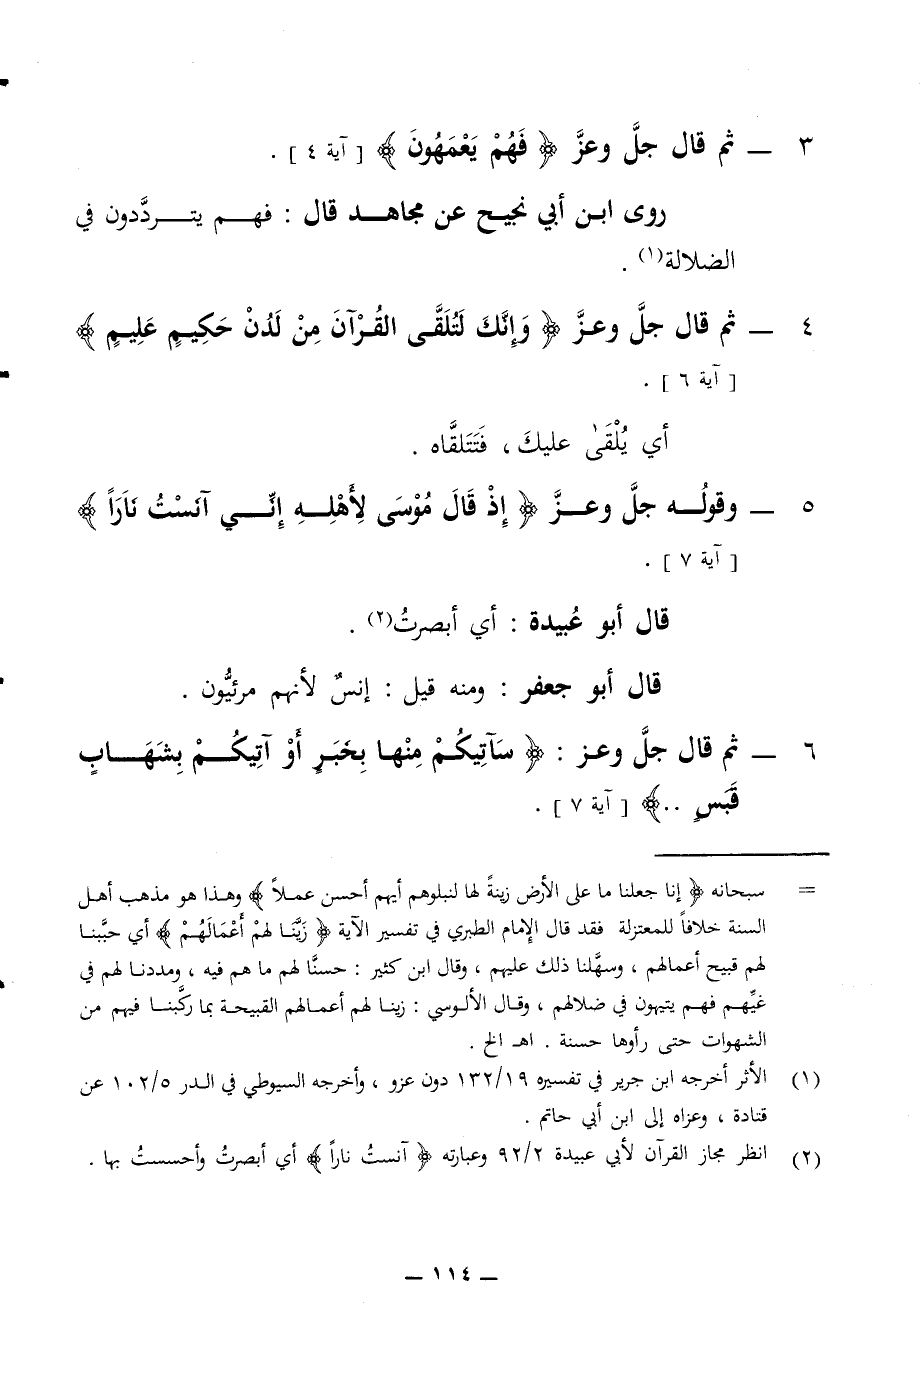 ٣ ـ ثم قال جلَّ وعزَّ ﴿ فَهُمْ يَعْمَهُونَ ﴾ [ آية ٤ ] .
روى ابن أبي نجيح عن مجاهد قال : فهم يتردَّدون في
الضلالة(١) .
٤ ـ ثم قال جلَّ وعزَّ ﴿ وَإِنَّكَ لَتُلَقَّى القُرْآنَ مِنْ لَدُنْ حَكِيمٍ عَلِيمٍ ﴾
[ آية ٦ ] .
أي يُلْقَىٰ عليكَ ، فَتَتَلقَّاه .
٥ ـ وقولُه جلَّ وعزَّ ﴿ إِذْ قَالَ مُوْسَى لِأَهْلِهِ إِنِّي آنَسْتُ نَارَاً ﴾
[ آية ٧ ] .
قال أبو عُبيدة : أي أبصرتُ(٢) .
قال أبو جعفر : ومنه قيل : إنسٌ لأنهم مرئيُّون .
٦ ـ ثم قال جلَّ وعز : ﴿ سَآتِيكُمْ مِنْها بِخَبَرٍ أَوْ آتِيكُمْ بِشَهَابٍ
قَبَسٍ ..﴾ [ آية ٧ ] .
= سبحانه ﴿ إنا جعلنا ما على الأرض زينةً لها لنبلوهم أيهم أحسن عملاً ﴾ وهذا هو مذهب أهل
السنة خلافاً للمعتزلة فقد قال الإمام الطبري في تفسير الآية ﴿ زَيَّنَا لهمْ أَعْمَالَهُمْ ﴾ أي حبَّبنا
لهم قبيح أعمالهم ، وسهَّلنا ذلك عليهم ، وقال ابن كثير : حسنَّا لهم ما هم فيه ، ومددنا لهم في
غيِّهم فهم يتيهون في ضلالهم ، وقال الألوسي : زينا لهم أعمالهم القبيحة بما ركَّبنا فيهم من
الشهوات حتى رأوها حسنة . اهـ الخ .
(١) الأثر أخرجه ابن جرير في تفسيره ١٣٢/١٩ دون عزو ، وأخرجه السيوطي في الدر ١٠٢/٥ عن
قتادة ، وعزاه إلى ابن أبي حاتم .
(٢) انظر مجاز القرآن لأبي عبيدة ٩٢/٢ وعبارته ﴿ آنستُ ناراً ﴾ أي أبصرتُ وأحسستُ بها .
ـ ١١٤ ـ